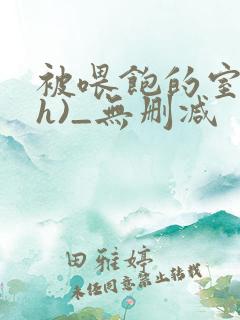 被喂飽的室
h)_無删减
田雅婷
未经同意禁止转载